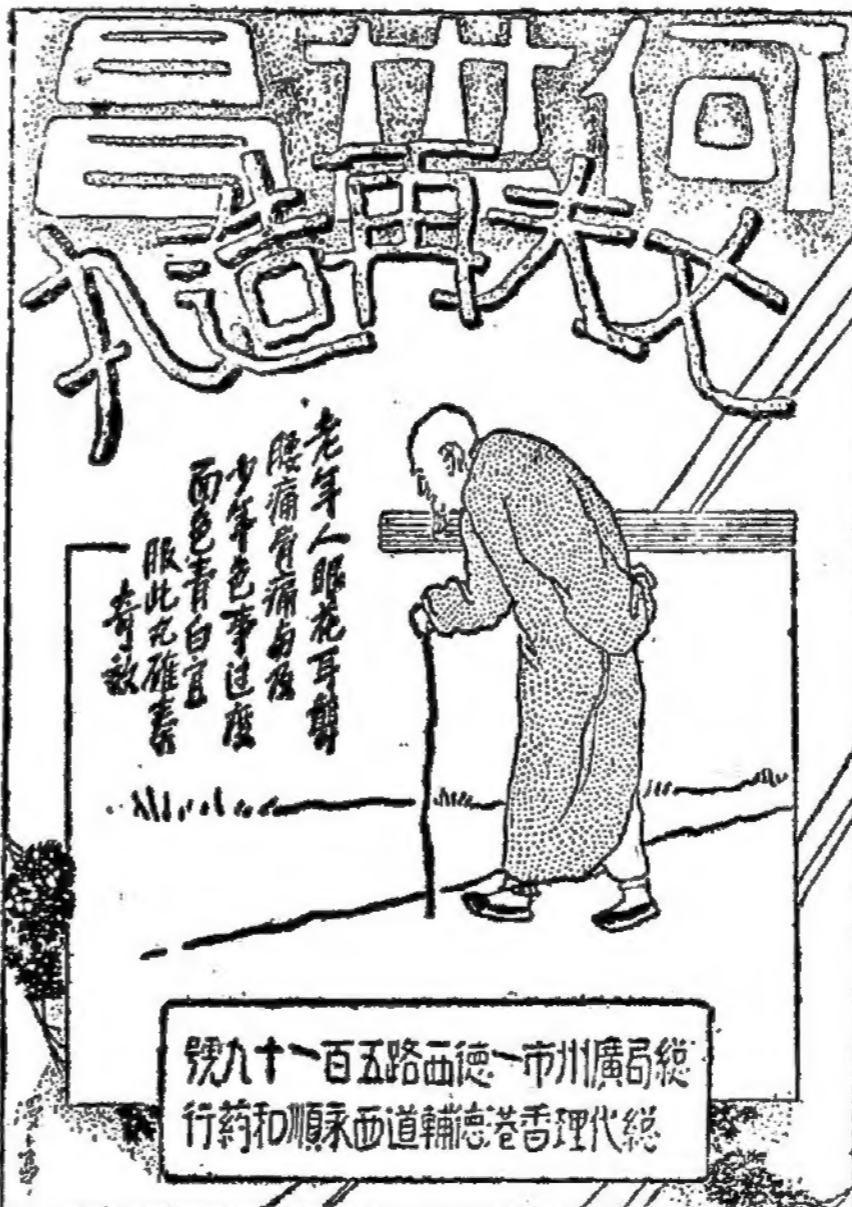 何世昌
再造丸
老年人眼花耳聾
腰痛骨痛与及
少年色事过度
面色青白宜
服此丸確奏
奇效
総局廣州市一德西路五百一十九號
総代理香港德輔道西永順和葯行